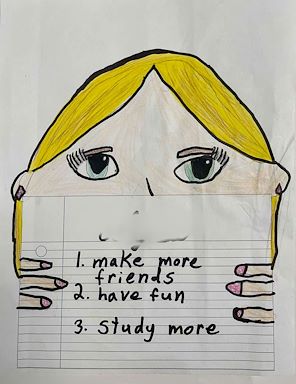 1. make more
friends
2. have fun
3. study more